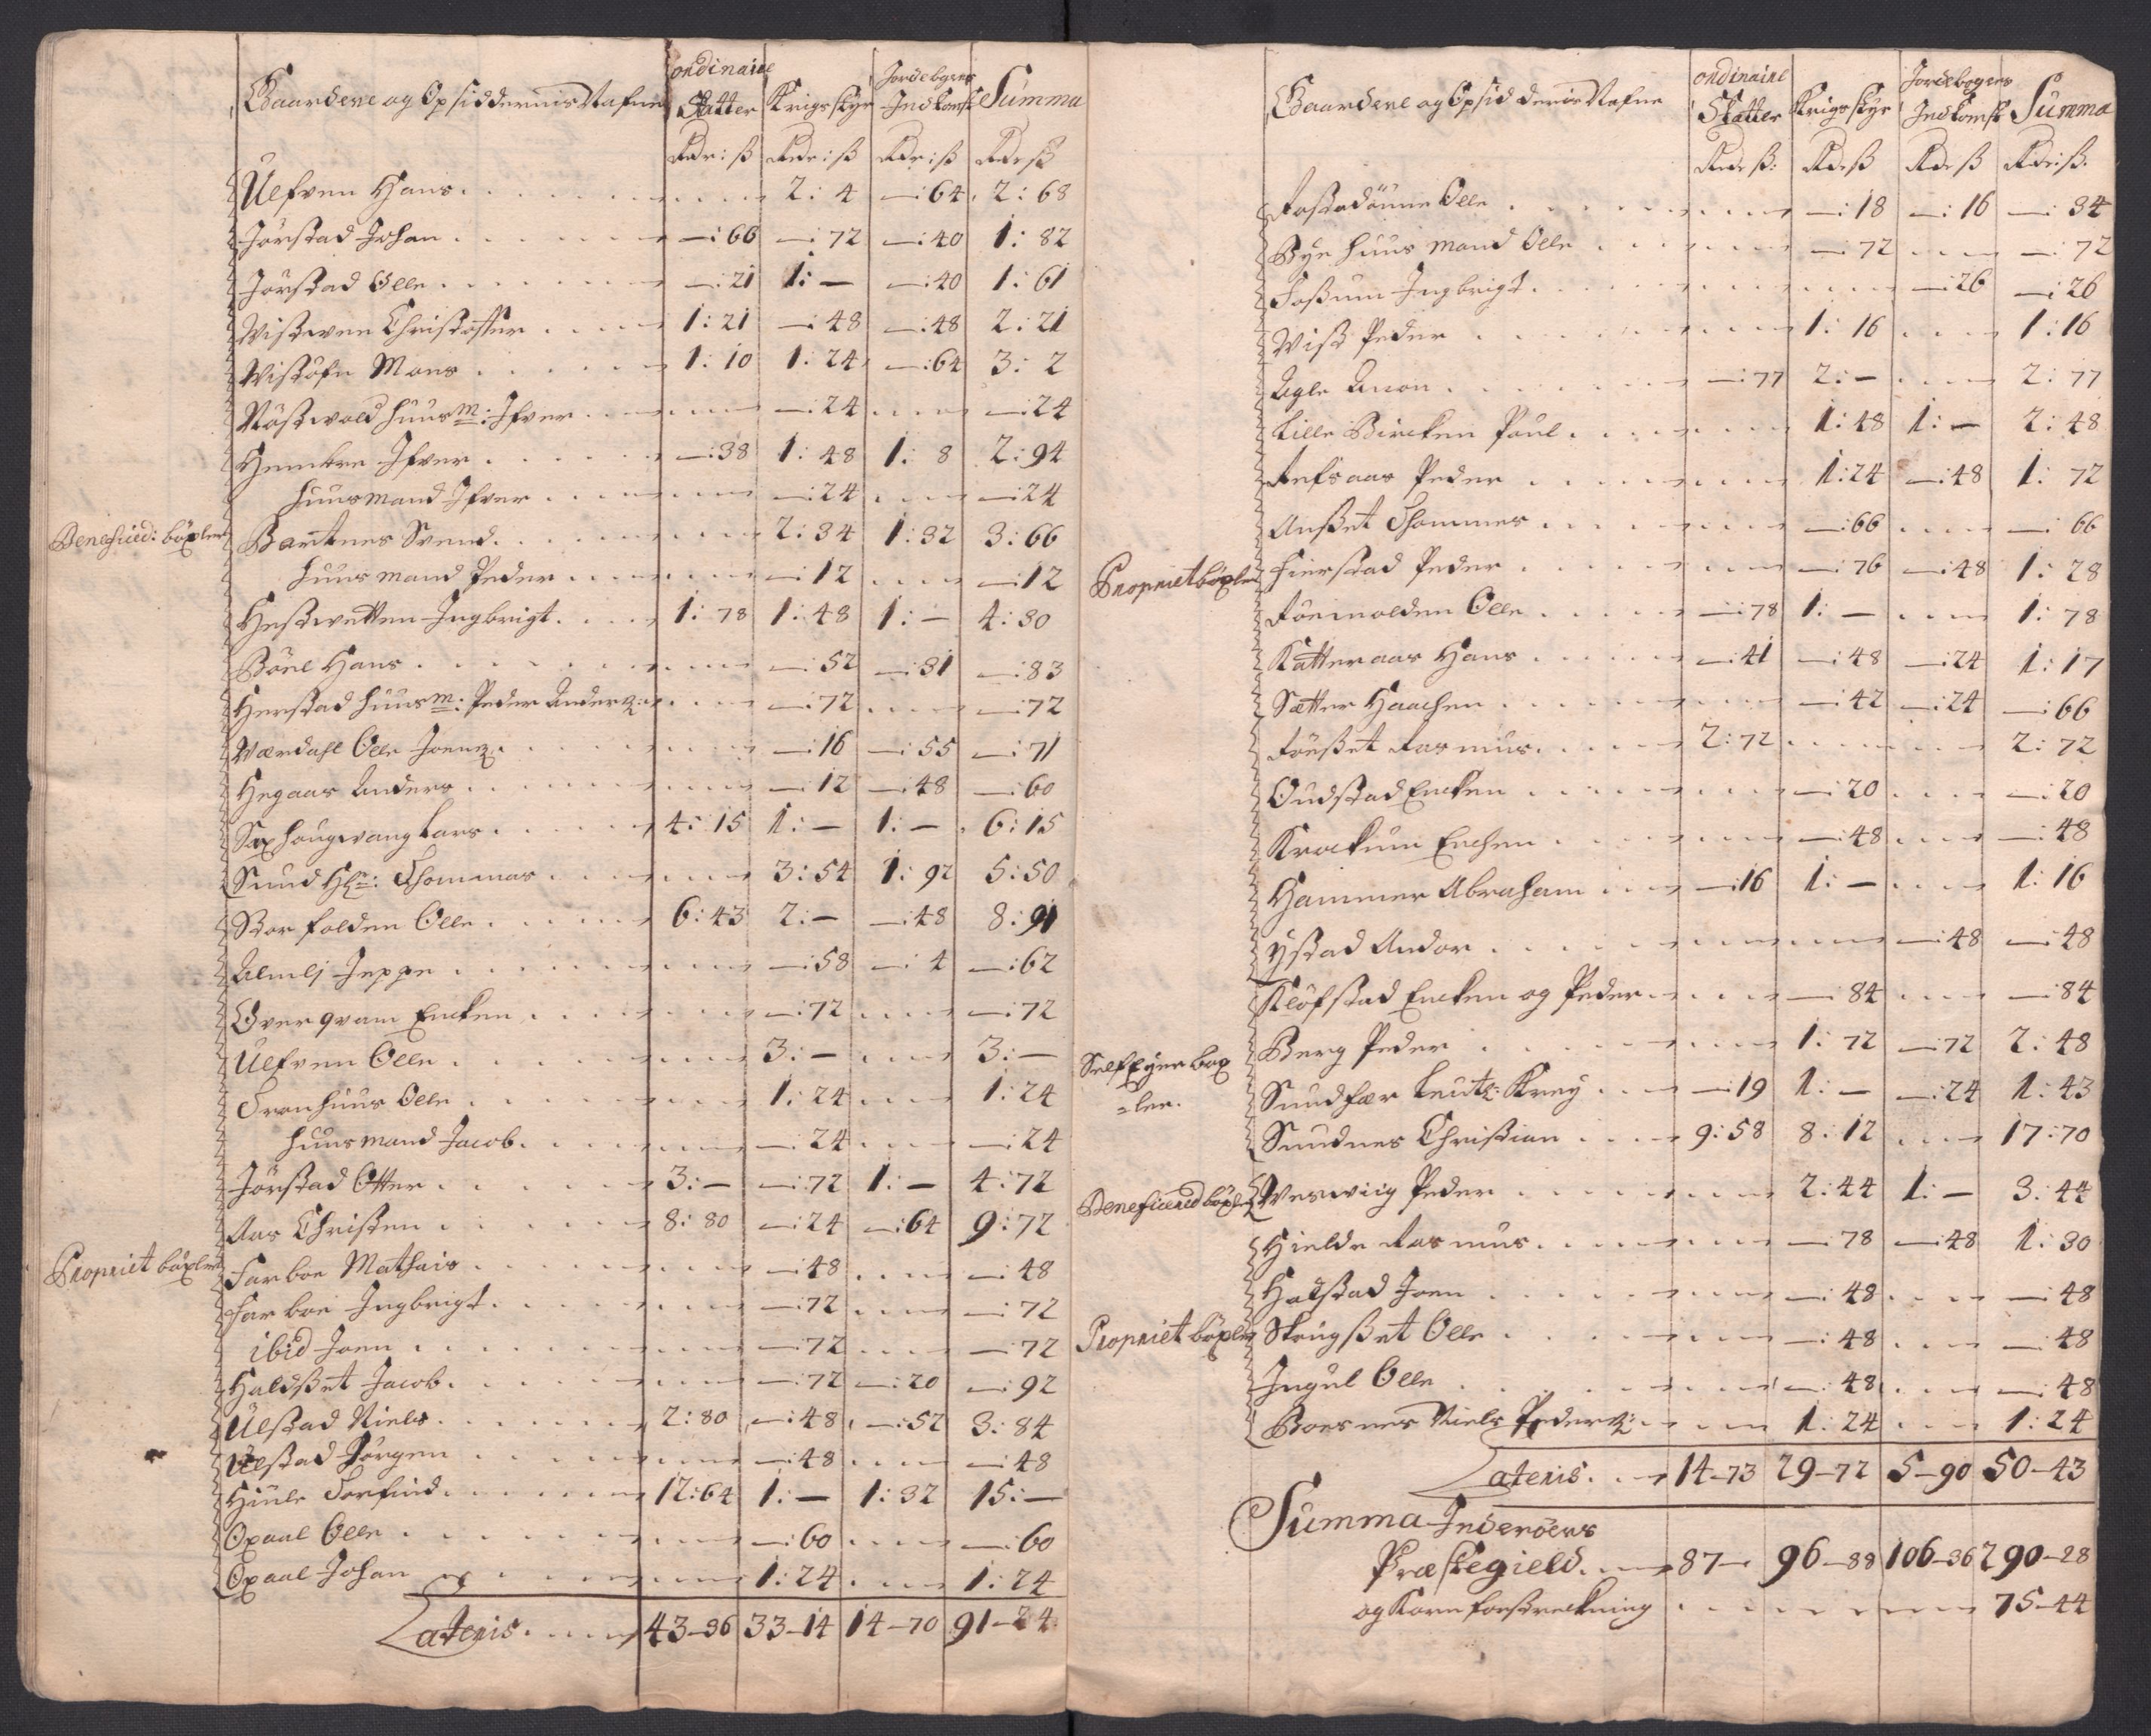 Gaardene og Opsiddernis Nafne | ordinaire Skatter | Krigs Styr | Jordebogens Indkomst | Summa
Rdr: ß | Rdr: ß | Rdr: ß | Rdr ß
Ulfven Hans . . . . 2: 4 | —: 64 | 2: 68
Jørstad Johan . . . —: 66 | —: 72 | —: 40 | 1: 82
Jørstad Olle . . . —: 21 | 1: — | —: 40 | 1: 61
Wistwen Christoffer . . . 1: 21 | —: 48 | —: 48 | 2: 21
Wistøfn Mons . . . 1: 10 | 1: 24 | —: 64 | 3: 2
Røstwold huusm: Ifver . . . —: 24 | . . . | —: 24
Hemkre Ifver . . . —: 38 | 1: 48 | 1: 8 | 2: 94
huusmand Ifver . . . —: 24 | . . . | —: 24
Beneficied: böxler Bartnes Svend . . . 2: 34 | 1: 32 | 3: 66
huusmand Peder . . . —: 12 | . . . | —: 12
Hestwetten Ingbrigt . . . 1: 78 | 1: 48 | 1: — | 4: 30
Böel Hans . . . —: 52 | —: 31 | —: 83
Herstad huusm: Peder Anders: . . . —: 72 | . . . | —: 72
Wærdahl Olle Joens . . . —: 16 | —: 55 | —: 71
Hegaas Anders . . . —: 12 | —: 48 | —: 60
Saxhougwang Lars . . . 4: 15 | 1: — | 1: — | 6: 15
Sund Hr: Thommas . . . 3: 54 | 1: 92 | 5: 50
Storfolden Olle . . . 6: 43 | 2: — | —: 48 | 8: 91
Almlj Jeppe . . . —: 58 | —: 4 | —: 62
Overqvam Encken . . . —: 72 | . . . | —: 72
Ulfven Olle . . . 3: — | . . . | 3: —
Tronhuus Olle . . . 1: 24 | . . . | 1: 24
huusmand Jacob . . . —: 24 | . . . | —: 24
Jørstad Otter . . . 3: — | —: 72 | 1: — | 4: 72
Aas Christen . . . 8: 80 | —: 24 | —: 64 | 9: 72
Propriet böxler Farboe Mathais . . . —: 48 | . . . | —: 48
Farboe Ingbrigt . . . —: 72 | . . . | —: 72
ibid Joen . . . —: 72 | . . . | —: 72
Haldset Jacob . . . —: 72 | —: 20 | —: 92
Ulstad Niels . . . 2: 80 | —: 48 | —: 52 | 3: 84
Ulstad Jørgen . . . —: 48 | . . . | —: 48
Hiule Torfind . . . 12: 64 | 1: — | 1: 32 | 15: —
Opaal Olle . . . —: 60 | . . . | —: 60
Opaal Johan . . . 1: 24 | . . . | 1: 24
Lateris . . . 43–36 | 33–14 | 14–70 | 91–24
Gaardene og Opsidderis Nafne | ordinaire Skatter | Krigs Styr | Jordebogens Indkomst | Summa
Rdr ß: | Rdr ß | Rdr ß | Rdr: ß.
Rostadönne Olle . . . —: 18 | —: 16 | —: 34
Bye huusmand Olle . . . —: 72 | . . . | —: 72
Fossum Ingbrigt . . . —: 26 | —: 26
Wist Peder . . . 1: 16 | . . . | 1: 16
Agle Anon . . . —: 77 | 2: — | . . . | 2: 77
Lille Bircken Poul . . . 1: 48 | 1: — | 2: 48
Refsaas Peder . . . 1: 24 | —: 48 | 1: 72
Ausset Thommes . . . —: 66 | . . . | —: 66
Propriet böxler Fierstad Peder . . . —: 76 | —: 48 | 1: 28
Röemolden Olle . . . —: 78 | 1: — | . . . | 1: 78
Katteraas Hans . . . —: 41 | —: 48 | —: 24 | 1: 17
Sætter Haachen . . . —: 42 | —: 24 | —: 66
Röusset Rasmus . . . 2: 72 | . . . | 2: 72
Oudstad Encken . . . —: 20 | . . . | —: 20
Krockum Erchen . . . —: 48 | . . . | —: 48
Hammer Abraham . . . —: 16 | 1: — | . . . | 1: 16
Ystad Andor . . . —: 48 | —: 48
Kløfstad Encken og Peder . . . —: 84 | . . . | —: 84
Self Eyer böx=ler. Berg Peder . . . 1: 72 | —: 72 | 2: 48
Sundfær Leutn: Krey . . . —: 19 | 1: — | —: 24 | 1: 43
Sundnes Christian . . . 9: 58 | 8: 12 | . . . | 17: 70
Beneficered böxler Weswiig Peder . . . 2: 44 | 1: — | 3: 44
Hielde Rasmus . . . —: 78 | —: 48 | 1: 30
Halstad Joen . . . —: 48 | . . . | —: 48
Propriet böxler Skougset Olle . . . —: 48 | . . . | —: 48
Ingul Olle . . . —: 48 | . . . | —: 48
Boesnes Niels Peders: . . . 1: 24 | . . . | 1: 24
Lateris . . . 14–73 | 29–72 | 5–90 | 50–43
Summa Inderøens
Præstegield . . . 87– | 96–88 | 106–36 | 290–28
og Kornforstreckning . . . 75–44